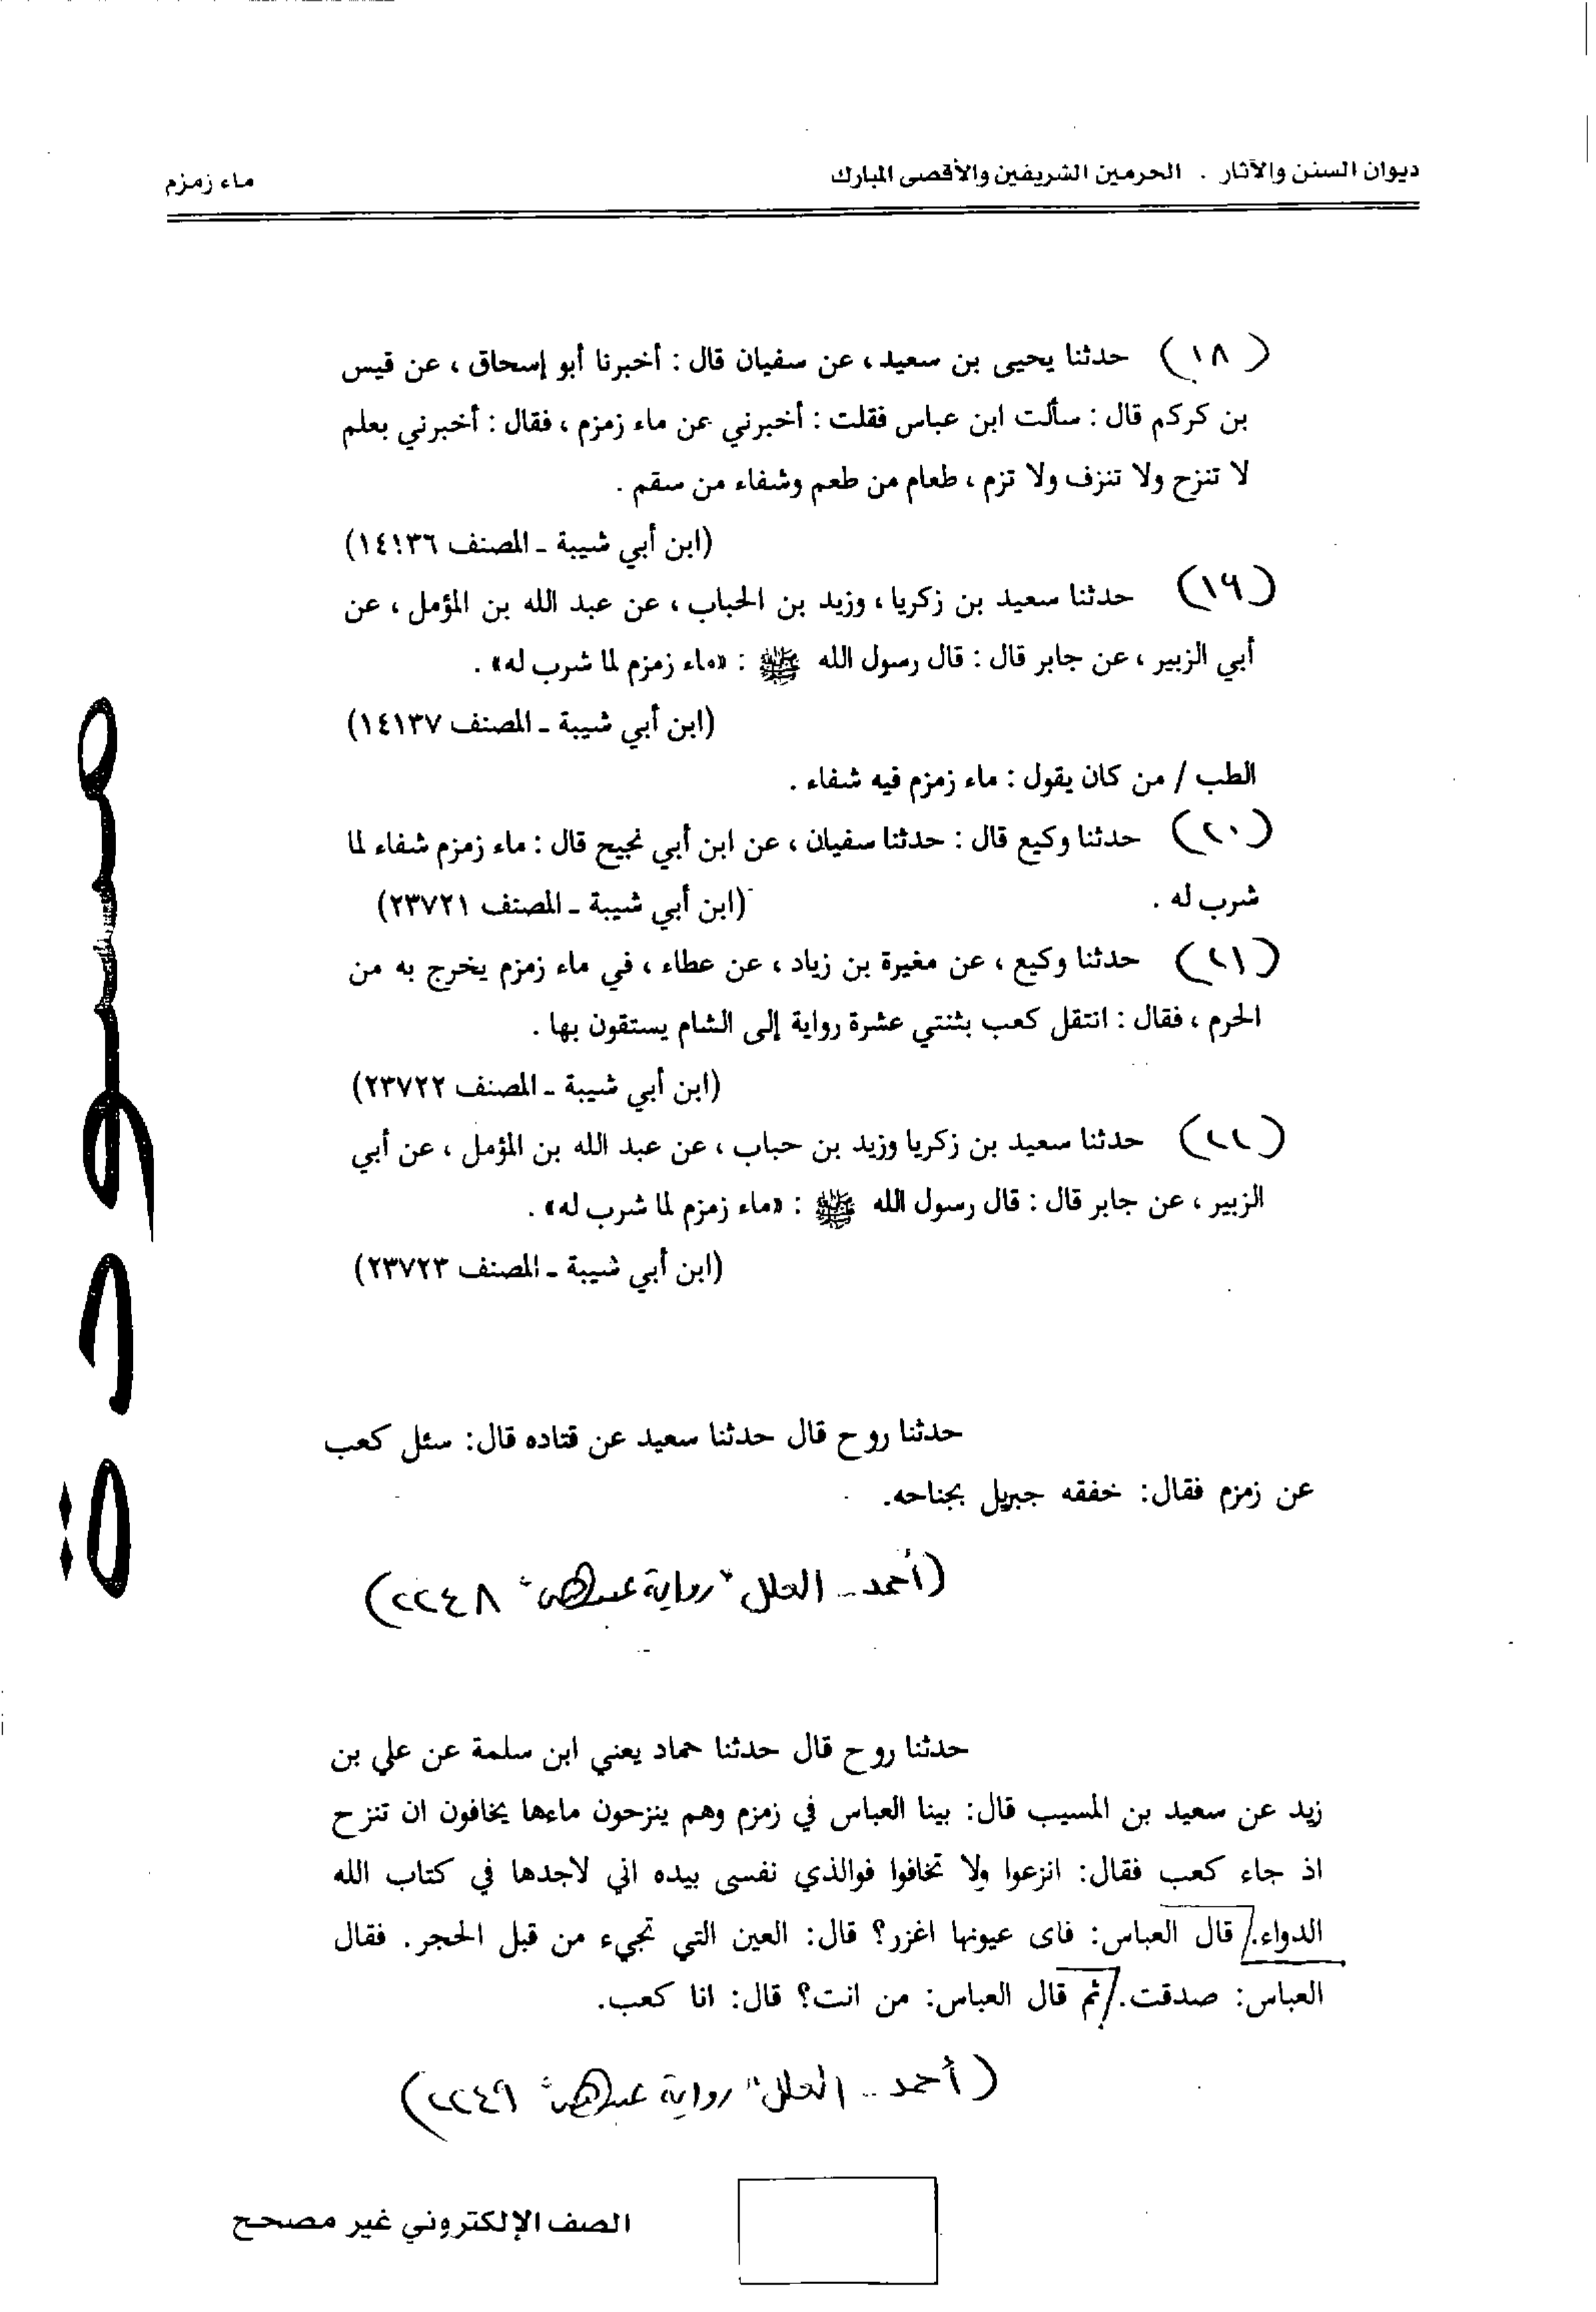 ديوان السنن والآثار . الحرمين الشريفين والأقصى المبارك
ماء زمزم
(١٨) حدثنا يحيى بن سعيد، عن سفيان قال : أخبرنا أبو إسحاق ، عن قيس
بن كركم قال : سألت ابن عباس فقلت : أخبرني عن ماء زمزم ، فقال : أخبرني بعلم
لا تنزح ولا تنزف ولا تزم ، طعام من طعم وشفاء من سقم .
(ابن أبي شيبة ـ المصنف ١٤١٣٦)
(١٩) حدثنا سعيد بن زكريا ، وزيد بن الحباب ، عن عبد الله بن المؤمل ، عن
أبي الزبير ، عن جابر قال : قال رسول الله ﷺ : «ماء زمزم لما شرب له» .
(ابن أبي شيبة ـ المصنف ١٤١٣٧)
الطب / من كان يقول : ماء زمزم فيه شفاء .
(٢٠) حدثنا وكيع قال : حدثنا سفيان ، عن ابن أبي نجيح قال : ماء زمزم شفاء لما
شرب له . (ابن أبي شيبة ـ المصنف ٢٣٧٢١)
(٢١) حدثنا وكيع ، عن مغيرة بن زياد ، عن عطاء ، في ماء زمزم يخرج به من
الحرم ، فقال : انتقل كعب بثنتي عشرة رواية إلى الشام يستقون بها .
(ابن أبي شيبة ـ المصنف ٢٣٧٢٢)
(٢٢) حدثنا سعيد بن زكريا وزيد بن حباب ، عن عبد الله بن المؤمل ، عن أبي
الزبير ، عن جابر قال : قال رسول الله ﷺ : «ماء زمزم لما شرب له» .
(ابن أبي شيبة ـ المصنف ٢٣٧٢٣)
حدثنا روح قال حدثنا سعيد عن قتاده قال: سئل كعب
عن زمزم فقال: خفقه جبريل بجناحه.
(أحمد - العلل "رواية عبدالله" ٢٢٤٨)
حدثنا روح قال حدثنا حماد يعني ابن سلمة عن علي بن
زيد عن سعيد بن المسيب قال: بينا العباس في زمزم وهم ينزحون ماءها يخافون ان تنزح
اذ جاء كعب فقال: انزعوا ولا تخافوا فوالذي نفسى بيده اني لاجدها في كتاب الله
الدواء. قال العباس: فاى عيونها اغزر؟ قال: العين التي تجيء من قبل الحجر. فقال
العباس: صدقت. ثم قال العباس: من انت؟ قال: انا كعب.
(أحمد - العلل "رواية عبدالله" ٢٢٤٩)
الصف الإلكتروني غير مصحح
مسودة